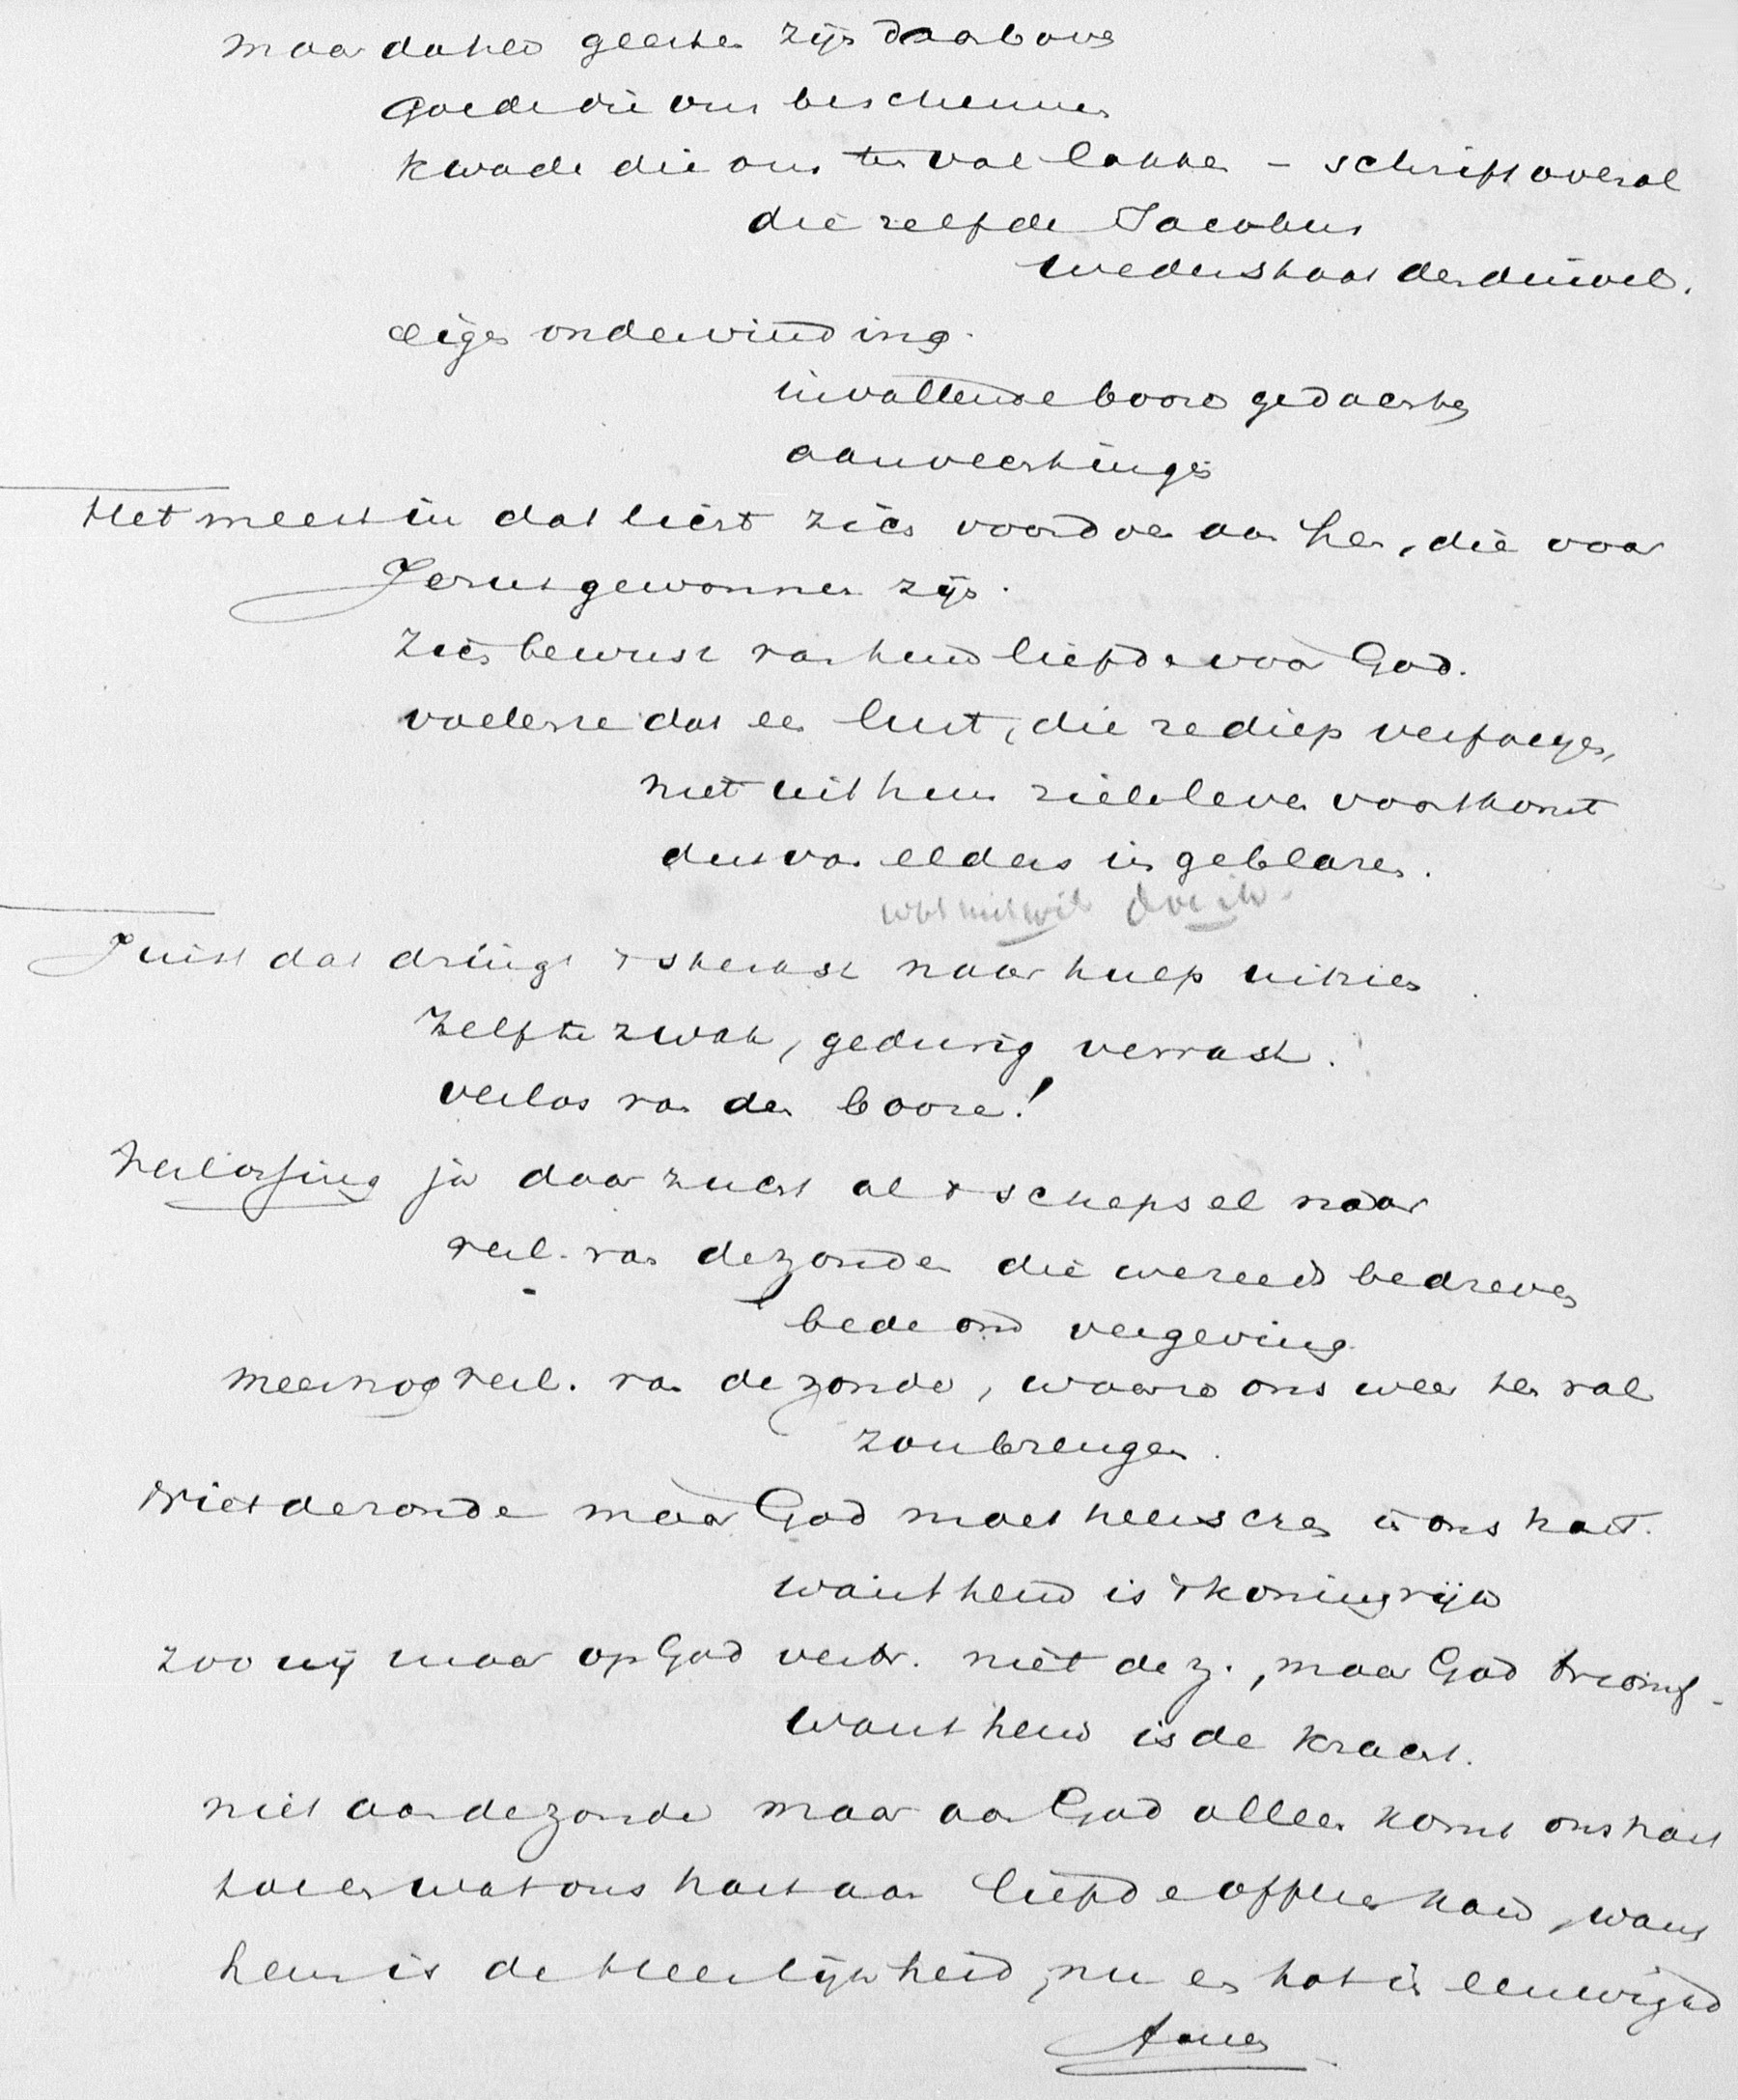 maar dat er geesten zijn daarboven
goede die ons beschermen
kwade die ons ten val lokken – schrift overal
die zelfde Jacobus
wederstaat den duivel.
eigen ondervinding.
invallende booze gedachten
aanvechtingen
Het meest in dat licht zich voordoen aan hen, die voor
Jezus gewonnen zijn.
zich bewust van hun liefde voor God.
voelen ze dat een lust, die ze diep verfoeyen,
niet uit hun zieleleven voortkomt
dus van elders is ingeblazen.
wat niet wil doe ik.
Juist dat dringt 't sterkst naar hulp uitzien
Zelf te zwak, gedurig verrast.
verlos van den booze!
Verlossing ja daar zucht al 't schepsel naar
verl. van de zonden die we reeds bedreven
bede om vergeving
meer nog verl. van de zonde, waarin ons weer ten val
zou brengen.
Niet de zonde maar God moet heerschen in ons hart.
want hem is 't koningrijk
zoo wij maar op God vertr. niet de z., maar God triomf.
want hem is de kracht.
niet aan de zonde maar aan God alleen komt ons hart
toe en wat ons hart aan liefde offeren kan, want
hem is de Heerlijkheid, nu en tot in eeuwigheid
Amen